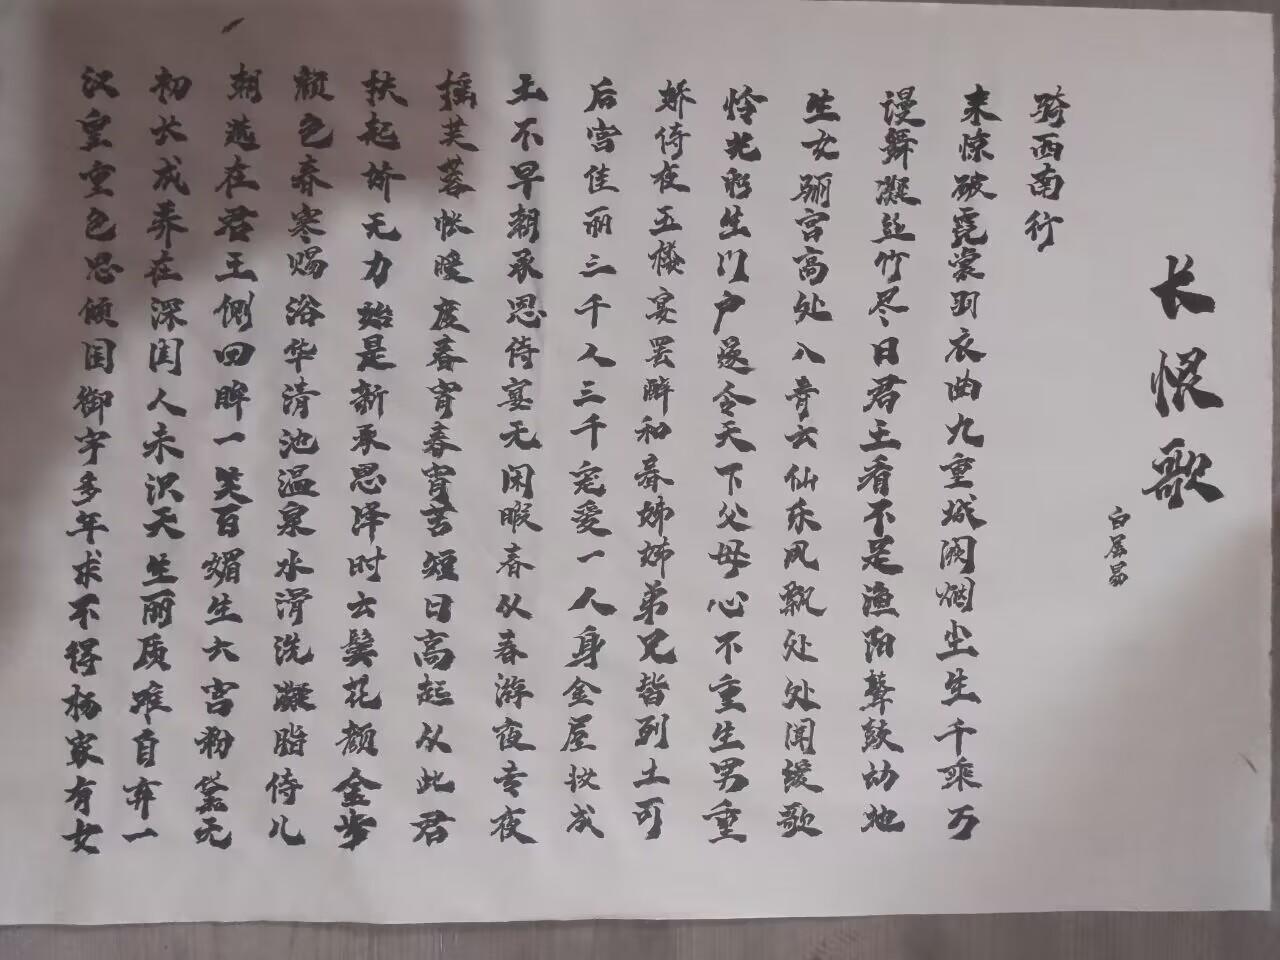 长恨歌
白居易
汉皇重色思倾国御宇多年求不得杨家有女
初长成养在深闺人未识天生丽质难自弃一
朝选在君王侧回眸一笑百媚生六宫粉黛无
颜色春寒赐浴华清池温泉水滑洗凝脂侍儿
扶起娇无力始是新承恩泽时云鬓花颜金步
摇芙蓉帐暖度春宵春宵苦短日高起从此君
王不早朝承恩侍宴无闲暇春从春游夜专夜
后宫佳丽三千人三千宠爱一人身金屋妆成
娇侍夜玉楼宴罢醉和春姊姊弟兄皆列土可
怜光彩生门户遂令天下父母心不重生男重
生女骊宫高处入青云仙乐风飘处处闻缓歌
谩舞凝丝竹尽日君王看不足渔阳鼙鼓动地
来惊破霓裳羽衣曲九重城阙烟尘生千乘万
骑西南行